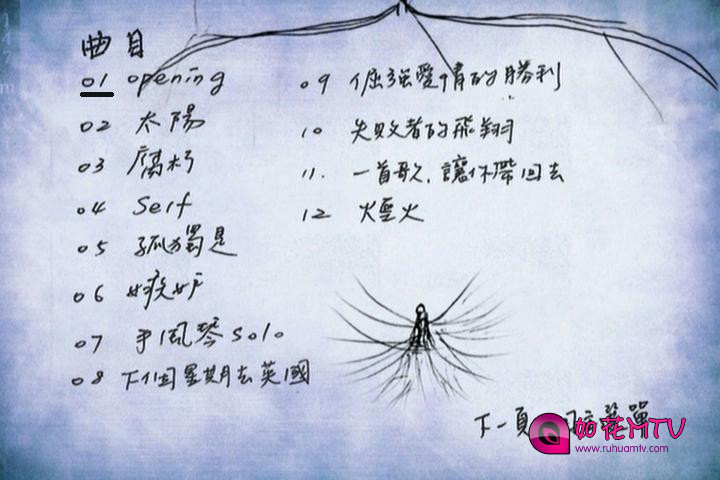 曲目
01 opening
02 太陽
03 腐朽
04 Self
05 孤獨是
06 嫉妒
07 手風琴 solo
08 下個星期去英國
09 倔強愛情的勝利
10 失敗者的飛翔
11. 一首歌，讓你帶回去
12 煙火
下一頁 單
如花MTV
www.ruhuamtv.com